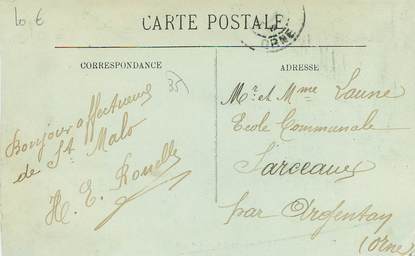 10 €
CARTE POSTALE
ORNE
CORRESPONDANCE
ADRESSE
35
Bonjour affectueux
de St Malo
H. E. Rouelle
Mr. et Mme Laune
Ecole Communale
Sarceaux
par Argentan
(Orne)